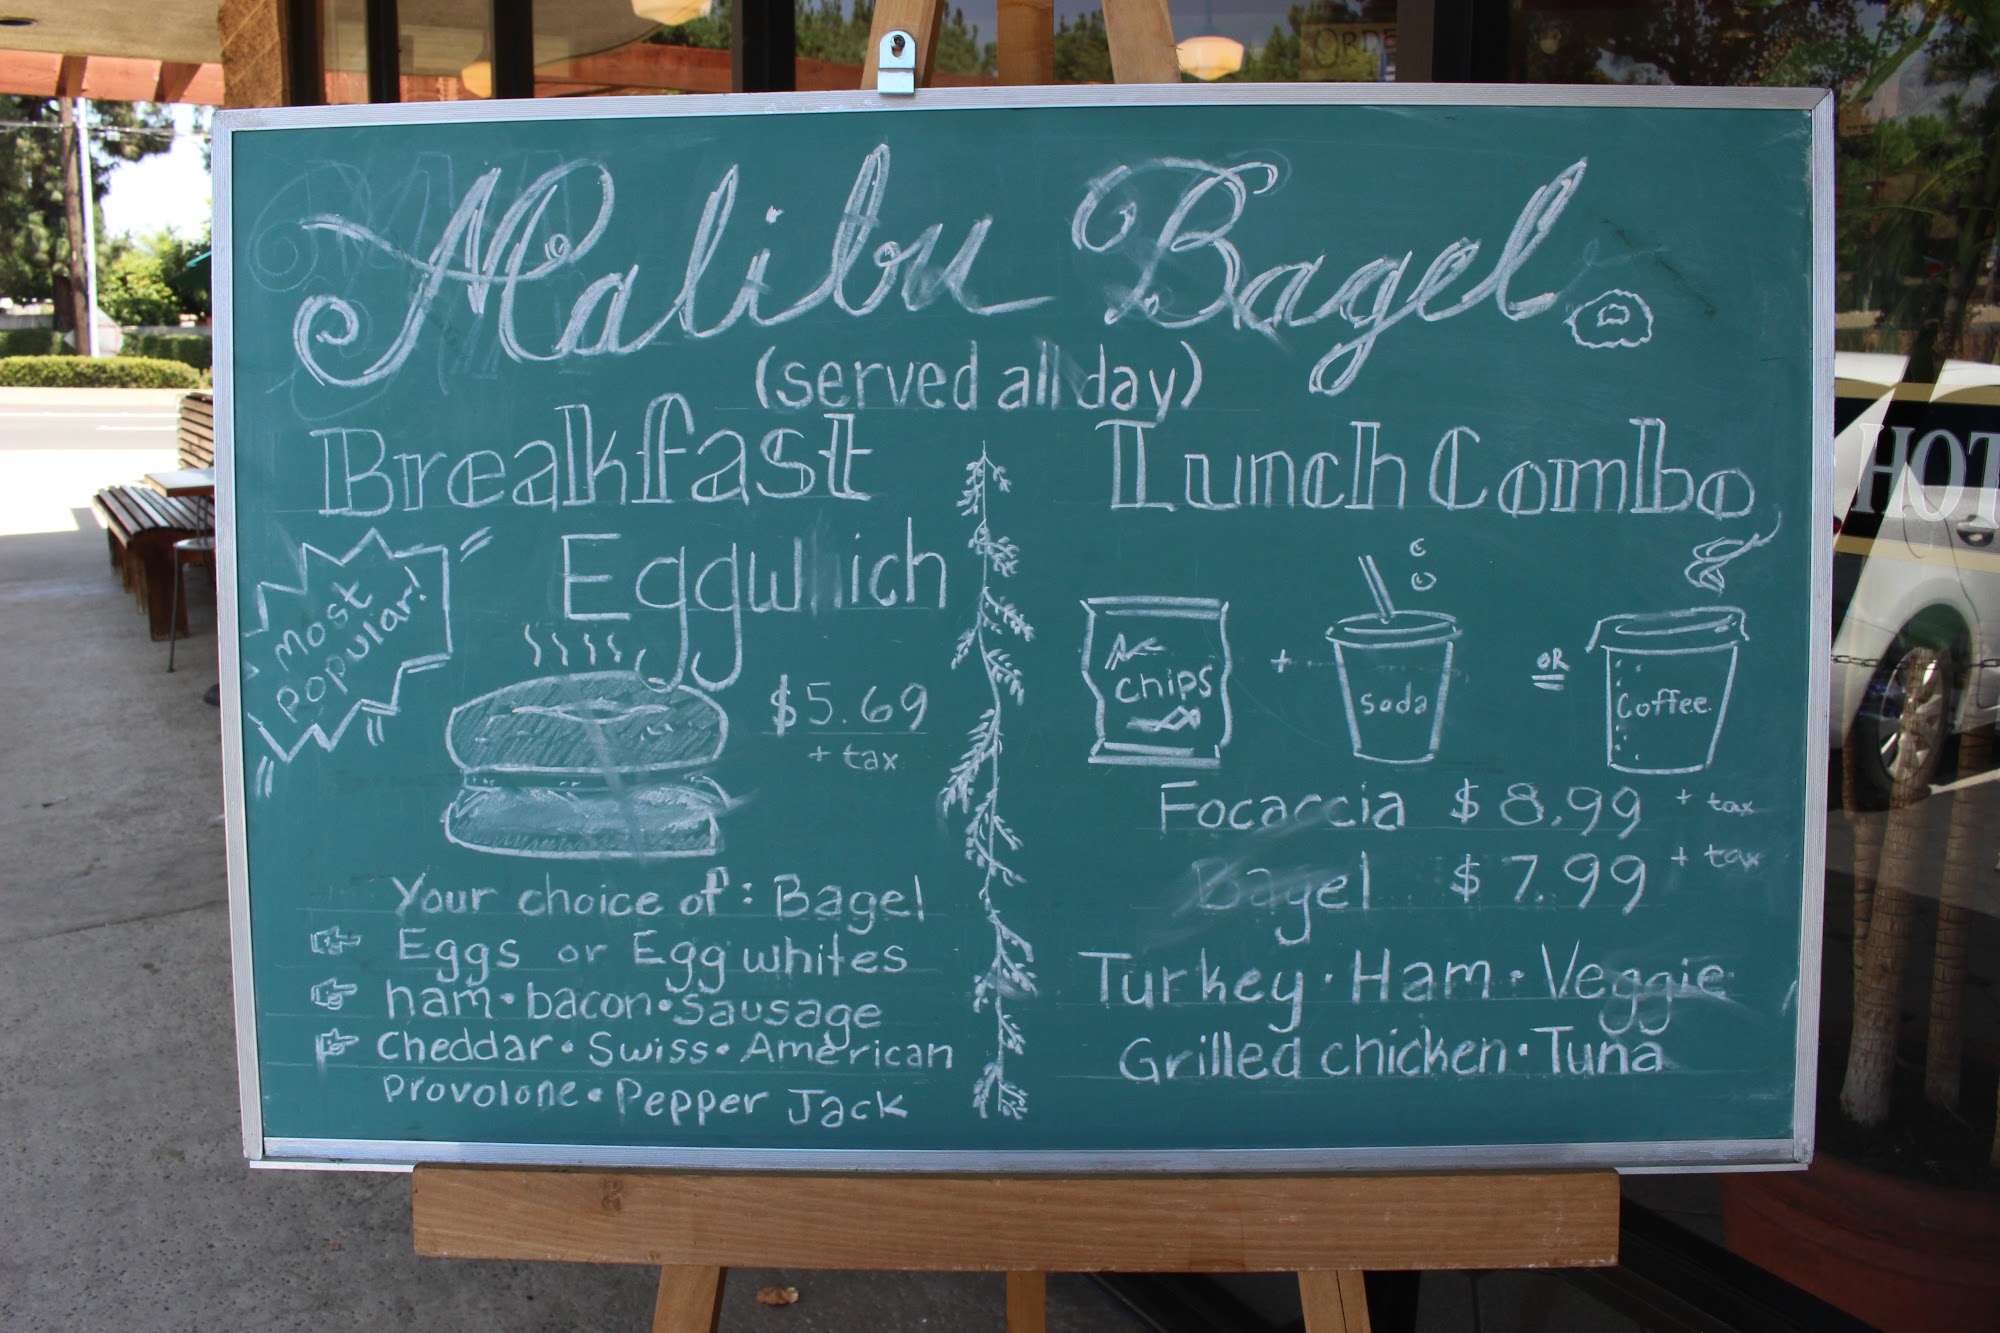 Malibu Bagel
(served all day)
Breakfast
Eggwhich
Most
popular!
$5.69
+ tax
Your choice of: Bagel
Eggs or Egg whites
ham • bacon • sausage
Cheddar • Swiss • American
Provolone • Pepper Jack
Lunch Combo
chips
+
Soda
OR
Coffee
Focaccia $8.99 + tax
Bagel $7.99 + tax
Turkey • Ham • Veggie
Grilled chicken • Tuna
HOT